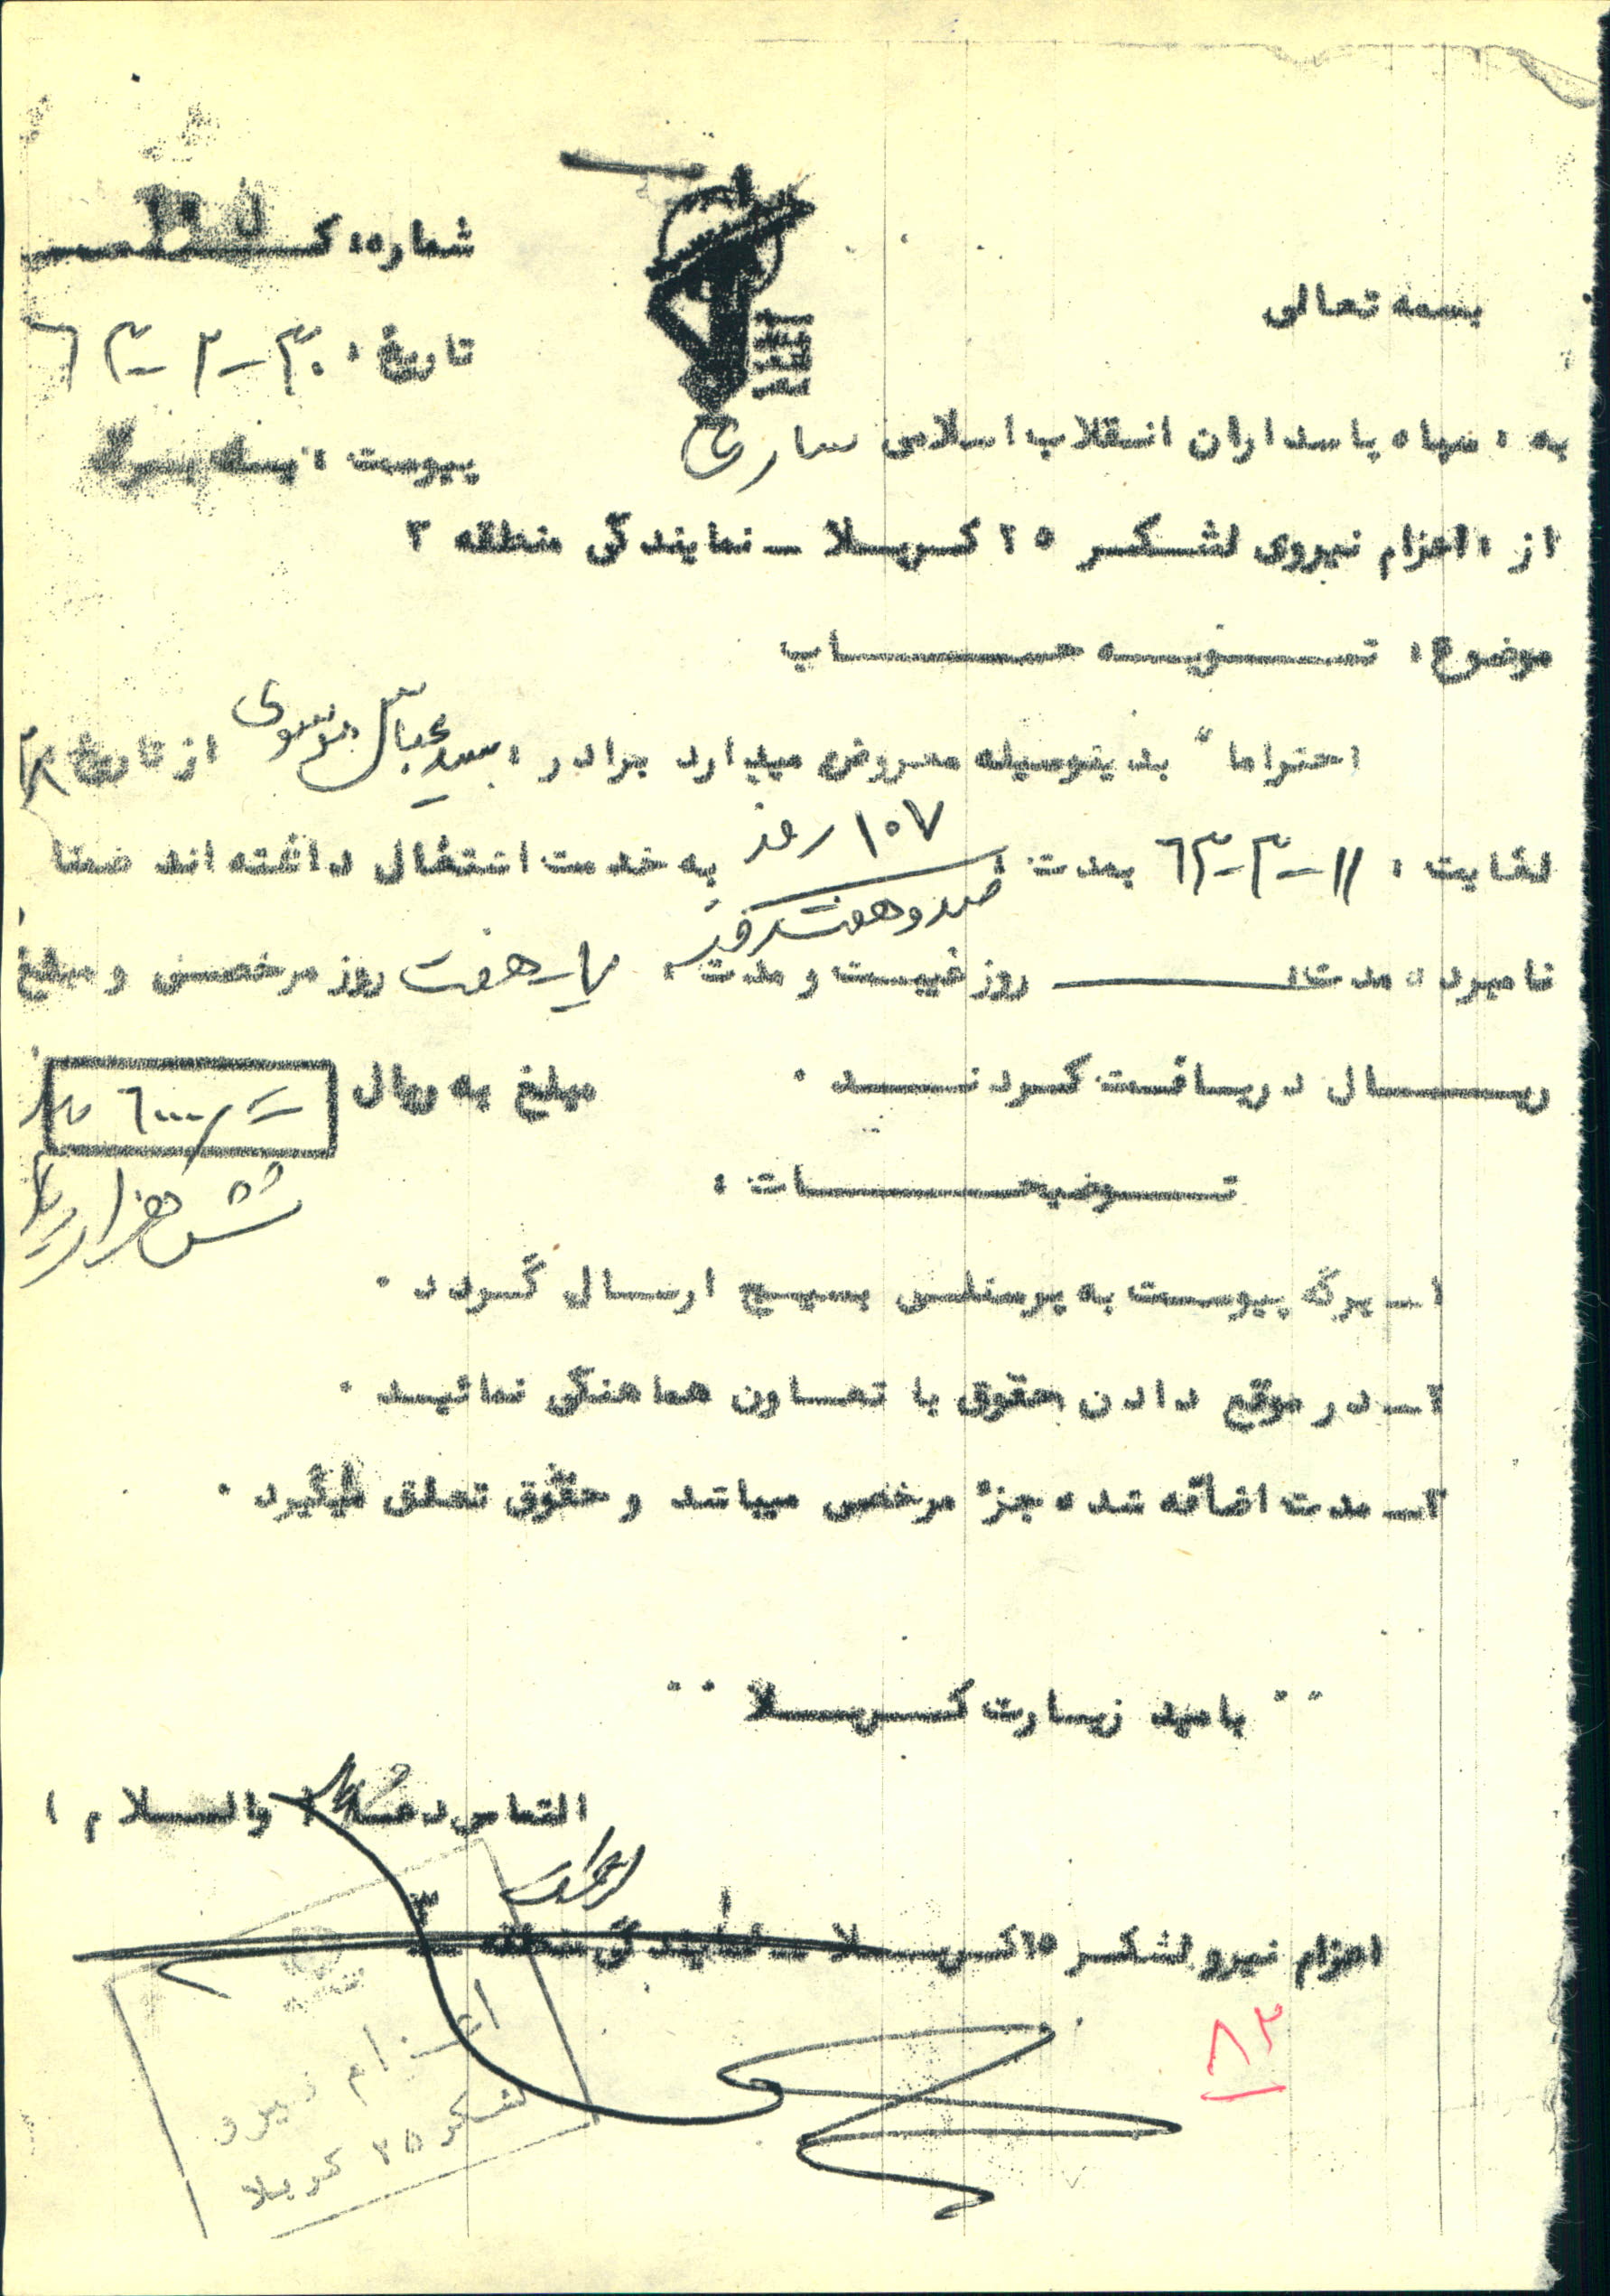 بسمه تعالی
شماره: ک
تاریخ: ۳۰-۲-۶۳
پیوست:
به: سپاه پاسداران انقلاب اسلامی ساری
از: اعزام نیروی لشکر ۲۵ کربلا - نمایندگی منطقه ۳
موضوع: تسویه حساب
احتراما" بدینوسیله معروض میدارد برادر: سید عباس موسوی از تاریخ
لغایت: ۱۱-۳-۶۳ بمدت: ۱۰۷ روز به خدمت اشتغال داشته اند ضمنا
صد و هفت روز
نامبرده مدت: روز غیبت و مدت: ۷- هفت روز مرخصی و مبلغ
ریال دریافت کردند. مبلغ به ریال ۶۰۰۰/=
شش هزار ریال
توضیحات:
۱- برگه پیوست به پرسنلی بسیج ارسال گردد.
۲- در موقع دادن حقوق با تعاون هماهنگی نمائید.
۳- مدت اضافه شده جزء مرخصی میباشد و حقوق تعلق میگیرد.
" بامید زیارت کربلا "
التماس دعا والسلام
اعزام نیرو لشکر ۲۵ کربلا - نمایندگی منطقه ۳
۸۲
اعزام نیرو
لشکر ۲۵ کربلا